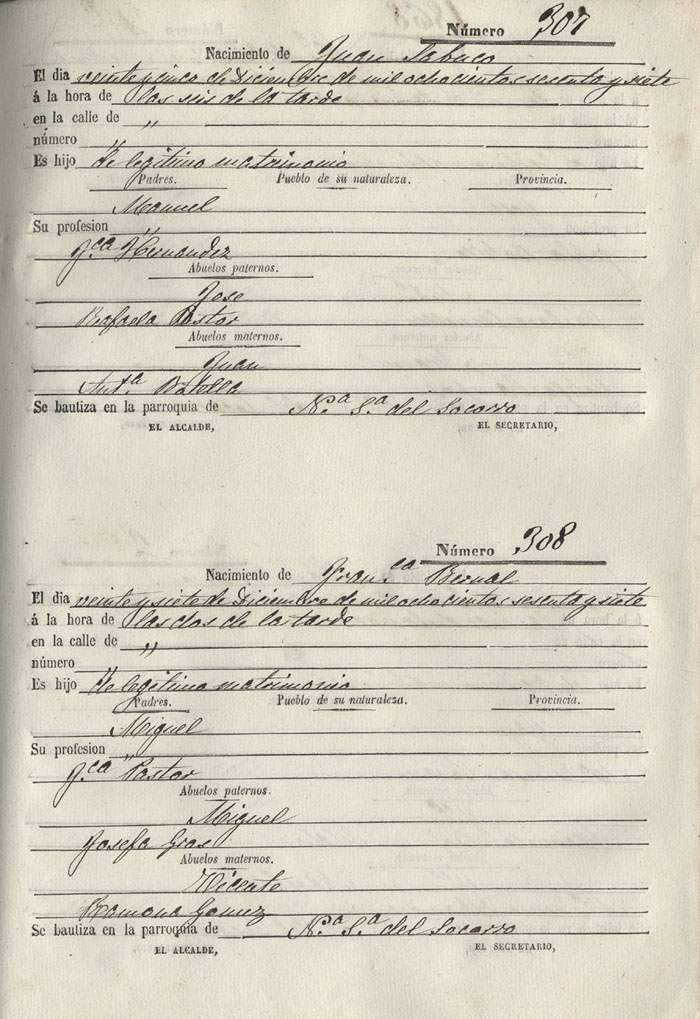 Número 307
Nacimiento de Juan Sabuco
El dia veinte y cinco de Diciembre de mil ochocientos sesenta y siete
á la hora de las seis de la tarde
en la calle de „
número „
Es hijo de legitimo matrimonio
Padres. Pueblo de su naturaleza. Provincia.
Manuel
Su profesion „
F.ca Hernandez
Abuelos paternos.
Jose
Rafaela Pastor
Abuelos maternos.
Juan
Ant.a Botella
Se bautiza en la parroquia de N.a S.a del Socorro
EL ALCALDE, EL SECRETARIO,
Número 308
Nacimiento de Fran.ca Bernal
El dia veinte y siete de Diciembre de mil ochocientos sesenta y siete
á la hora de las dos de la tarde
en la calle de „
número
Es hijo de legitimo matrimonio
Padres. Pueblo de su naturaleza. Provincia.
Miguel
Su profesion „
F.ca Pastor
Abuelos paternos.
Miguel
Josefa Gras
Abuelos maternos.
Vicente
Ramona Gomez
Se bautiza en la parroquia de N.a S.a del Socorro
EL ALCALDE, EL SECRETARIO,